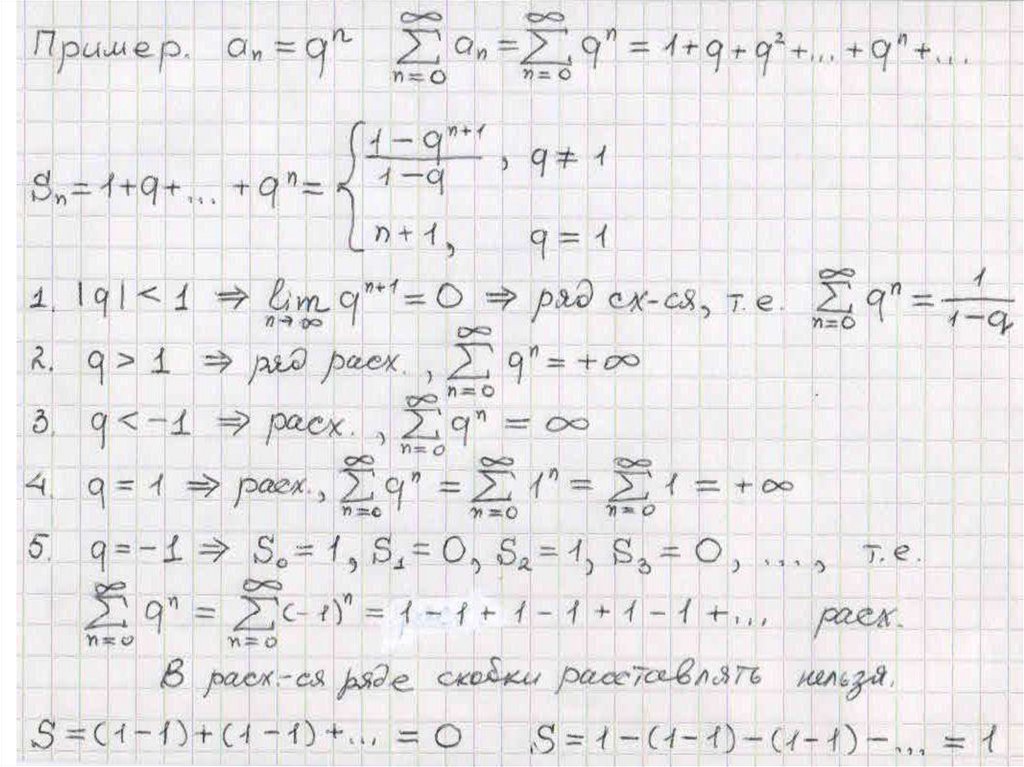 Пример. aₙ = qⁿ ∑_{n=0}^{∞} aₙ = ∑_{n=0}^{∞} qⁿ = 1+q+q²+...+qⁿ+...
Sₙ = 1+q+...+qⁿ = { (1-qⁿ⁺¹)/(1-q), q ≠ 1
n+1, q = 1
1. |q| < 1 ⇒ lim_{n→∞} qⁿ⁺¹ = 0 ⇒ ряд сх-ся, т.е. ∑_{n=0}^{∞} qⁿ = 1/(1-q)
2. q > 1 ⇒ ряд расх., ∑_{n=0}^{∞} qⁿ = +∞
3. q < -1 ⇒ расх., ∑_{n=0}^{∞} qⁿ = ∞
4. q = 1 ⇒ расх., ∑_{n=0}^{∞} qⁿ = ∑_{n=0}^{∞} 1ⁿ = ∑_{n=0}^{∞} 1 = +∞
5. q = -1 ⇒ S₀ = 1, S₁ = 0, S₂ = 1, S₃ = 0, ..., т.е.
∑_{n=0}^{∞} qⁿ = ∑_{n=0}^{∞} (-1)ⁿ = 1-1+1-1+1-1+... расх.
В расх-ся ряде скобки расставлять нельзя.
S = (1-1)+(1-1)+... = 0 S = 1-(1-1)-(1-1)-... = 1